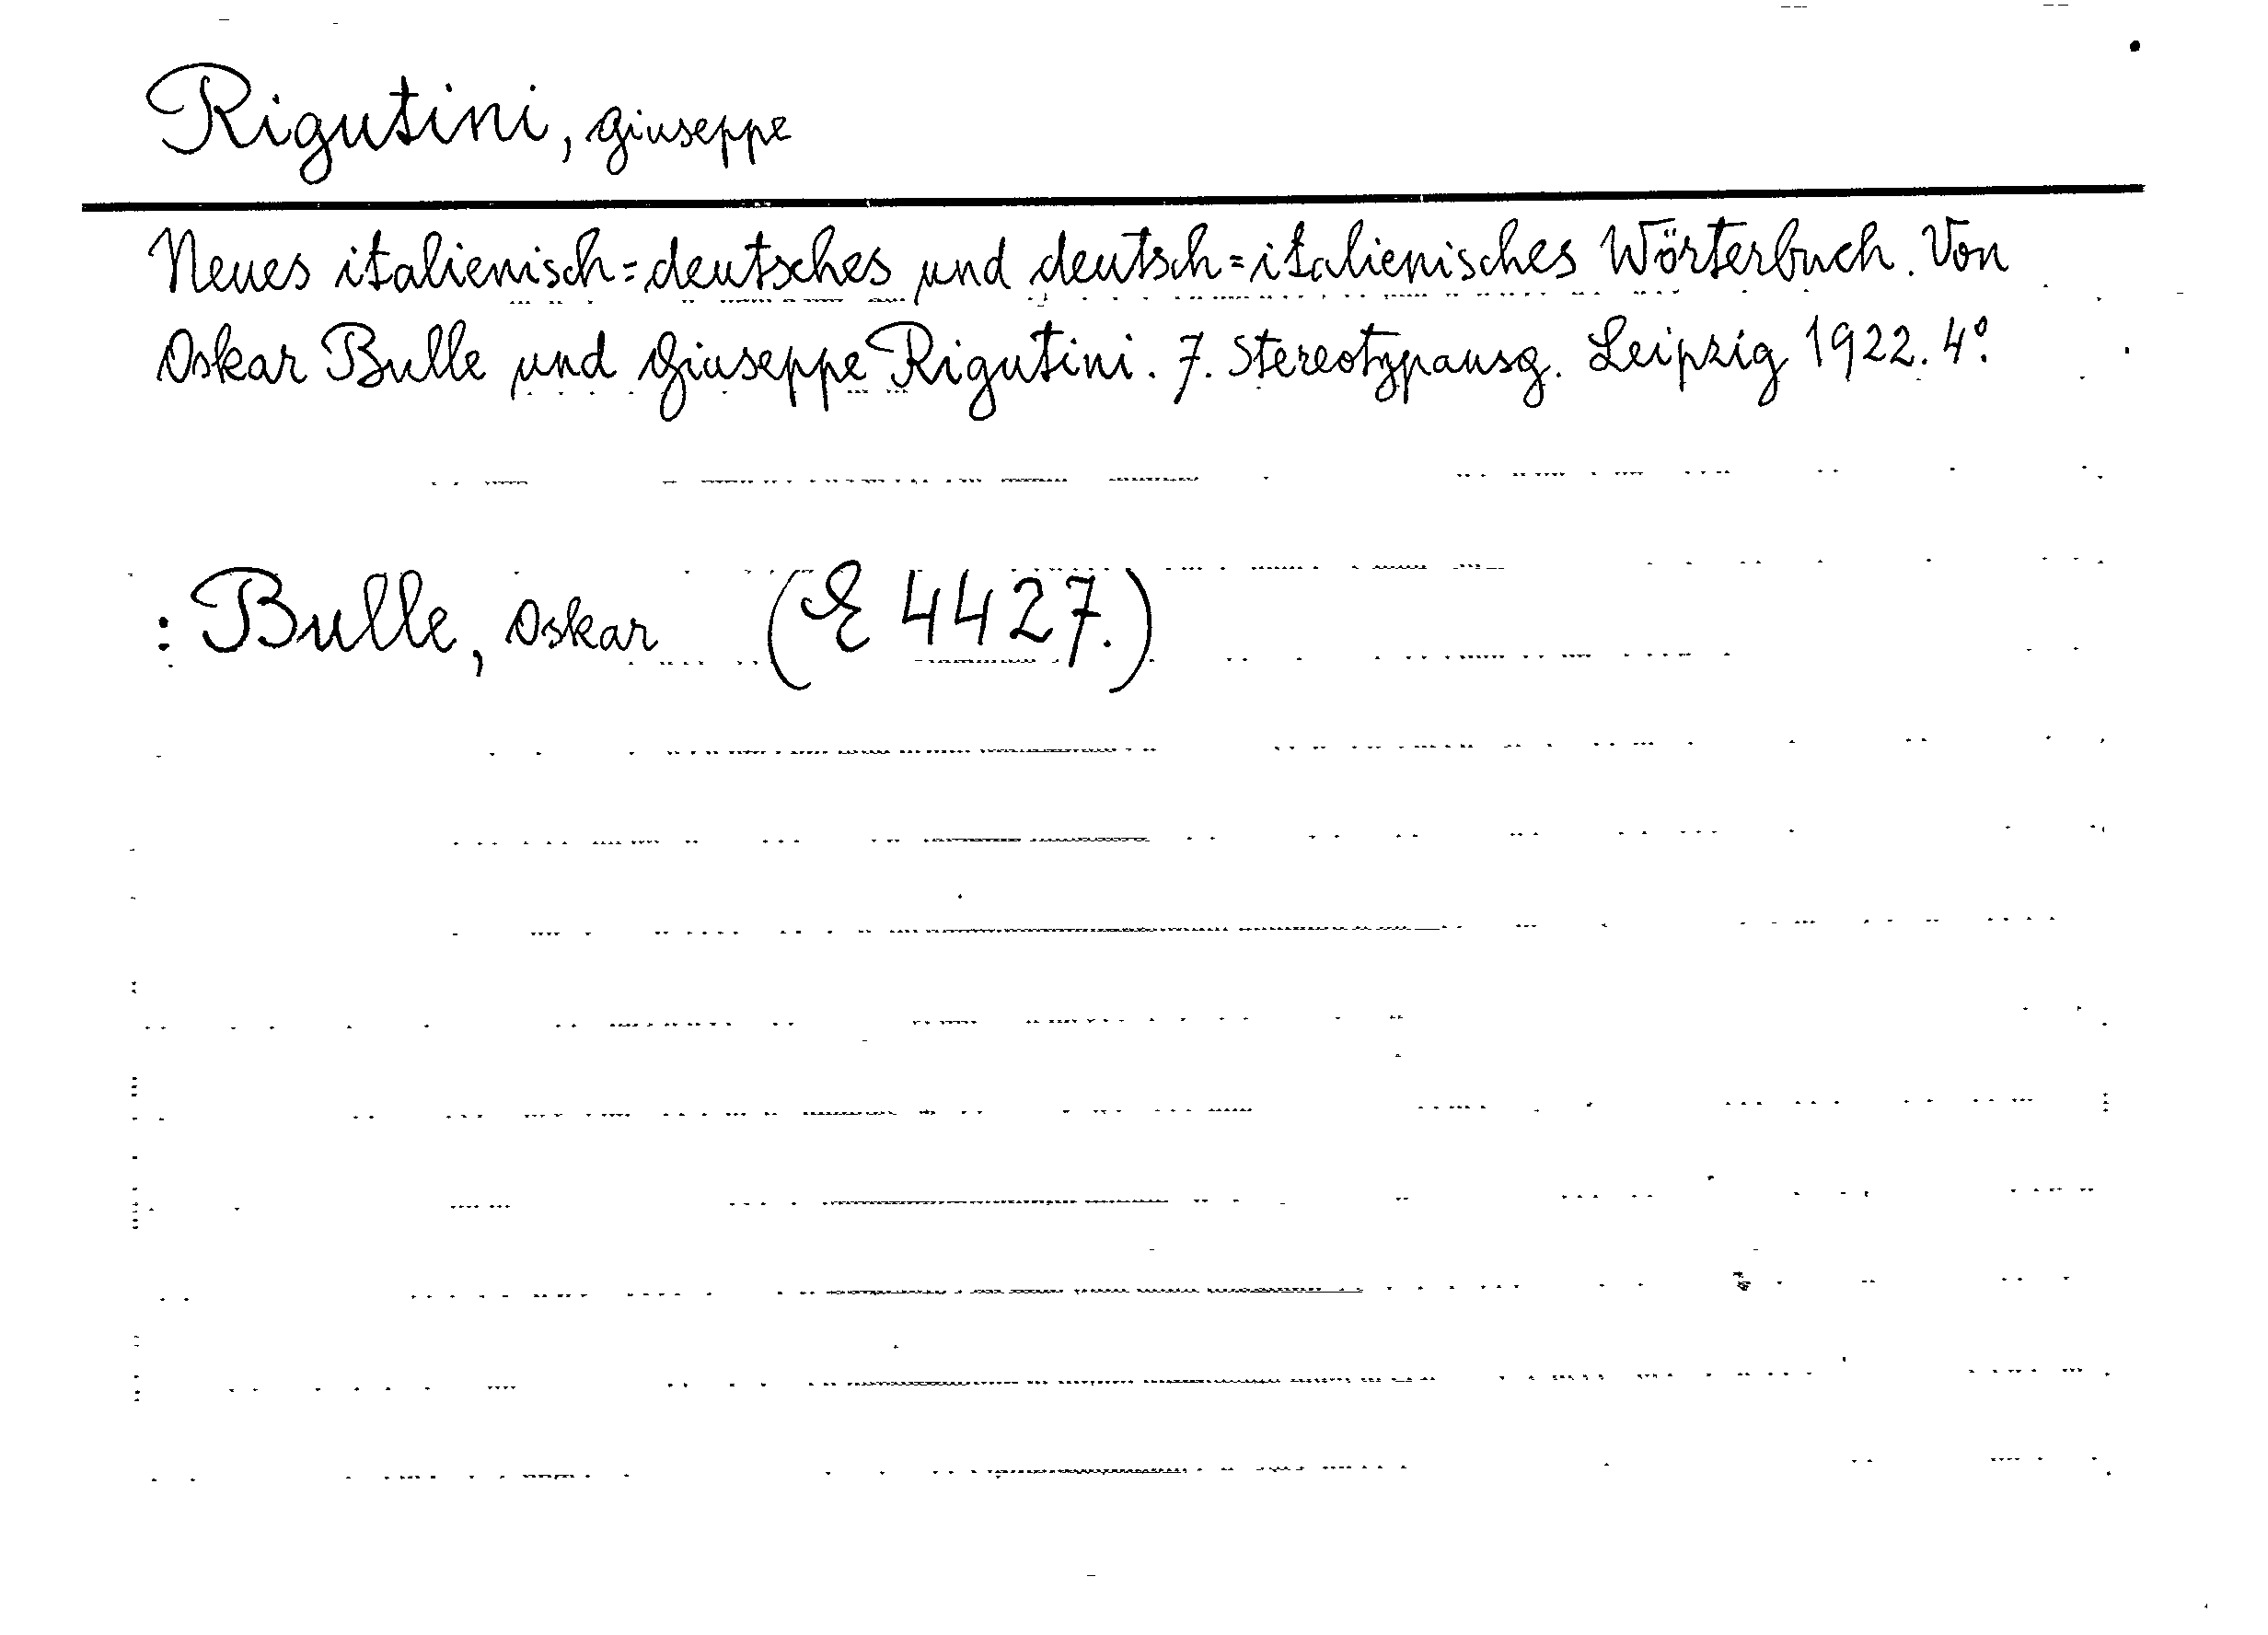 Rigutini, Giuseppe
Neues italienisch=deutsches und deutsch=italienisches Wörterbuch. Von
Oskar Bulle und Giuseppe Rigutini. 7. Stereotypausg. Leipzig 1922. 4°.
: Bulle, Oskar (E 4427.)